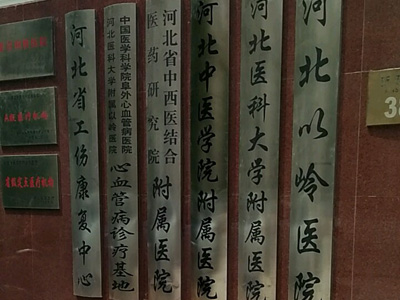 省级定点医疗机构
河北省工伤康复中心
中国医学科学院阜外心血管病医院
河北医科大学附属以岭医院
心血管病诊疗基地
河北省中西医结合
医药研究院
附属医院
河北中医学院附属医院
河北医科大学附属医院
河北以岭医院